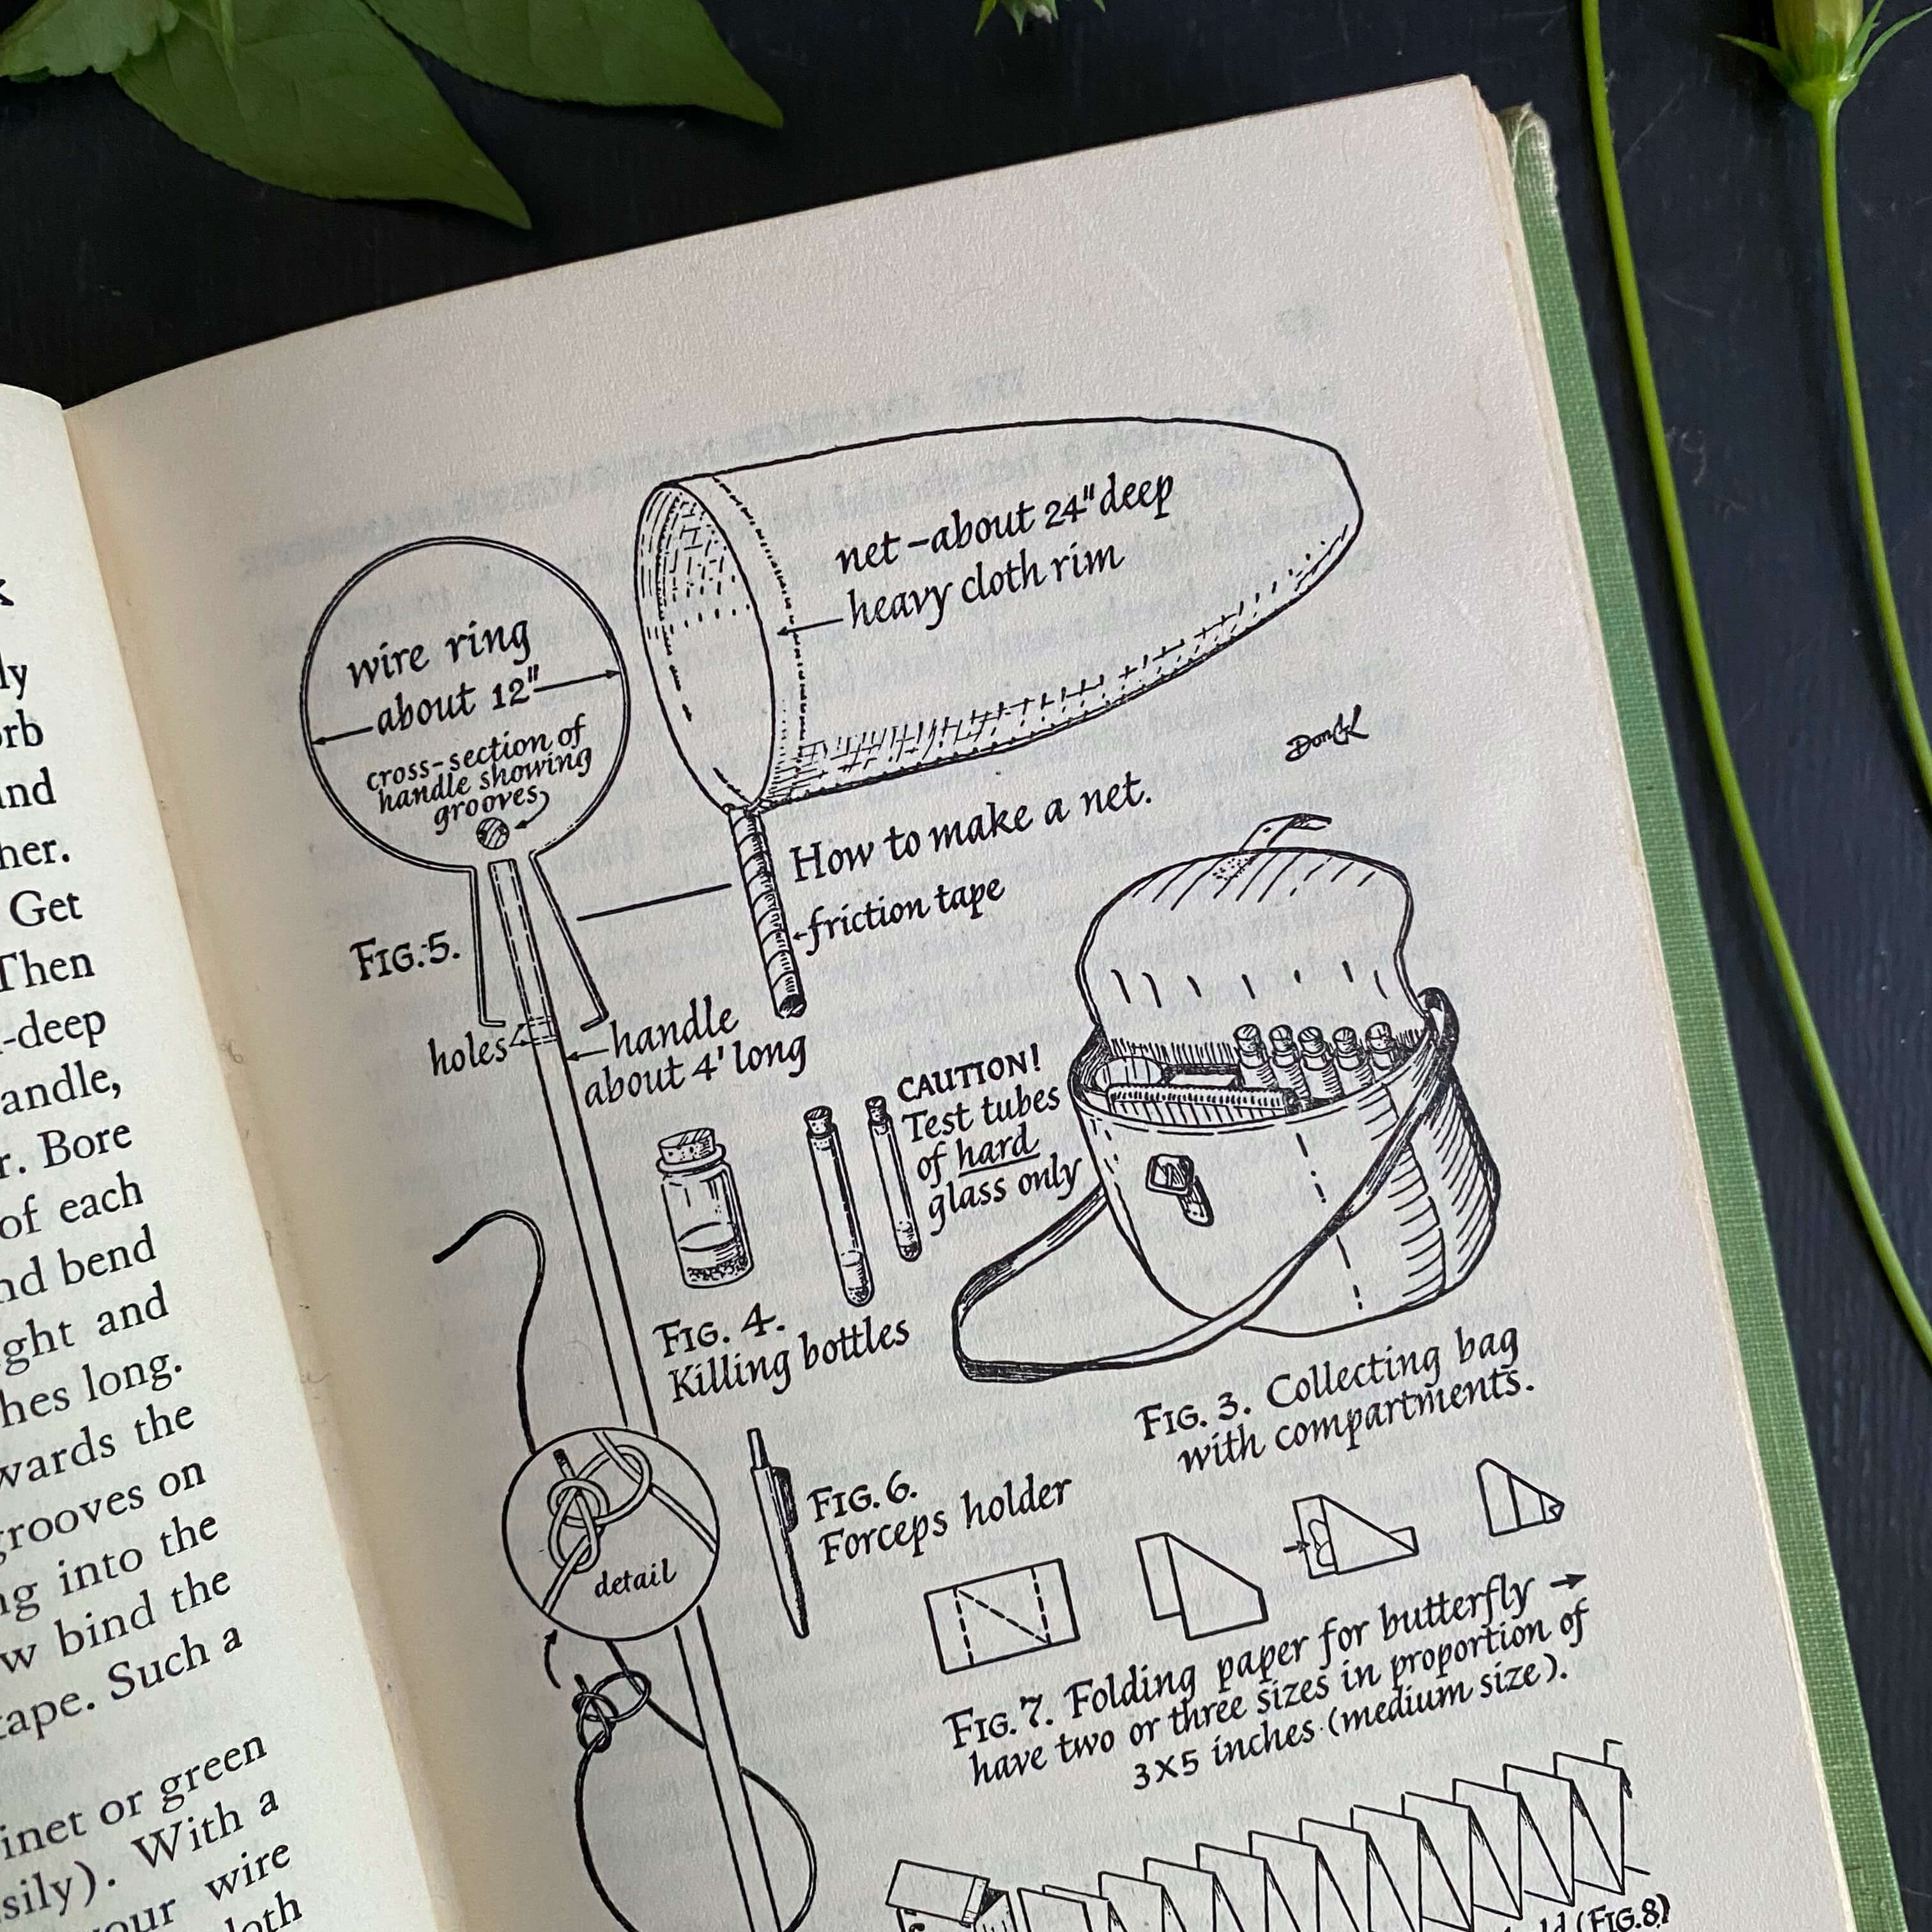 ly
and
her.
Get
Then
-deep
andle,
r. Bore
of each
nd bend
ght and
hes long.
wards the
grooves on
ng into the
w bind the
tape. Such a
inet or green
sily). With a
your wire
loth
net-about 24" deep
heavy cloth rim
wire ring
about 12"
cross-section of
handle showing
grooves
DonCK
How to make a net.
friction tape
FIG. 5.
holes
handle
about 4' long
CAUTION!
Test tubes
of hard
glass only
FIG. 4.
Killing bottles
FIG. 3. Collecting bag
with compartments.
detail
FIG. 6.
Forceps holder
FIG. 7. Folding paper for butterfly →
have two or three sizes in proportion of
3X5 inches (medium size).
(FIG.8)